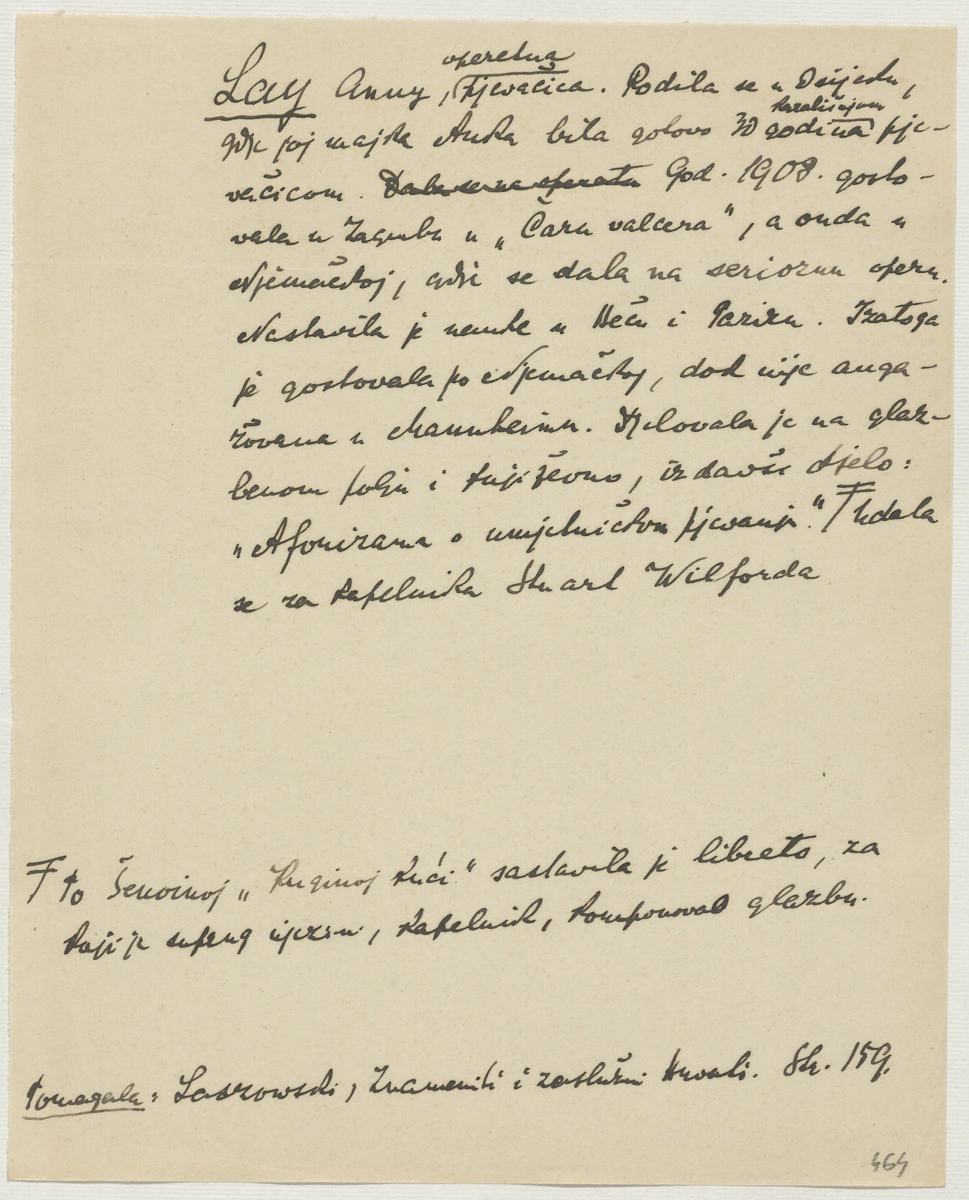 operetna
Lay Anny, pjevačica. Rodila se u Osijeku,
kazališnom
gdje joj majka Anka bila gotovo 30 godina pje-
vačicom. God. 1908. gosto-
vala u Zagrebu u „Čaru valcera", a onda u
Njemačkoj, gdje se dala na serioznu operu.
Nastavila je nauke u Beču i Parizu. Iza toga
je gostovala po Njemačkoj, dok nije anga-
žovana u Mannheimu. Djelovala je na glaz-
benom polju i književno, izdavši djelo:
„Aforizama o umjetničkom pjevanju." Ŧ Udala
se za kapelnika Stuart Wilforda
Ŧ Po Šenoinoj „Kuginoj kući" sastavila je libreto, za
koji je suprug njezin, kapelnik, komponovao glazbu.
Pomagala: Laszowski, Znameniti i zaslužni Hrvati. Str. 159.
464